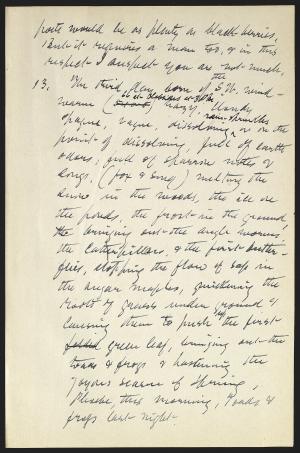 poets would be as plenty as blackberries,
But it requires a man too, & in this
respect I suspect you are not much.
13. The third day born of the S.W. wind -
warm ( ) hazy,
vague, dissolving, or on the
point of dissolving, full of earth
odors, full of sparrow notes &
songs, (fox & song) melting the
snow in the woods, the ice on
the ponds, the frost in the ground,
bringing out the angle worms,
the Caterpillars, & the first butter-
flies, stopping the flow of sap in
the sugar maples, quickening the
roots of grasses under ground &
causing them to push up the first
green leaf, bringing out the
toads & frogs & hastening the
joyous season of Spring,
Phoebe, this morning, Toads &
frogs last night.